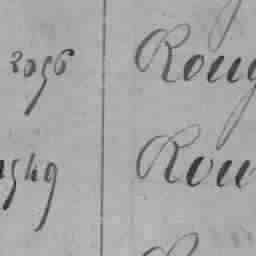 2056 Roug
1549 Rou